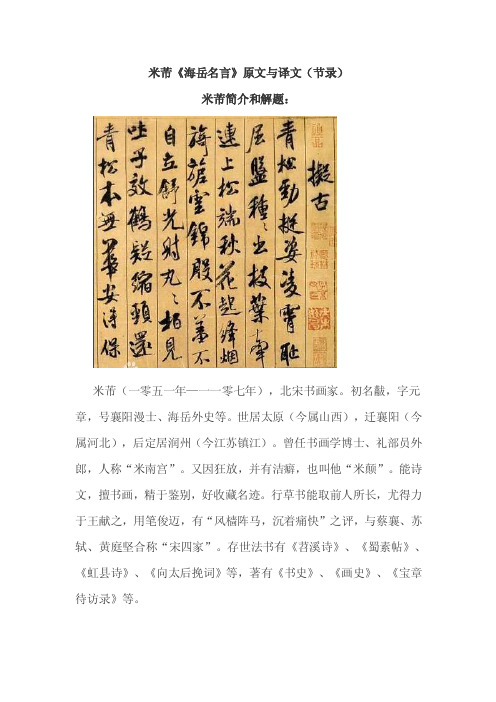 米芾《海岳名言》原文与译文（节录）
米芾简介和解题：
擬古
青松勁挺姿凌霄恥
屈盤種〻出枝葉牽
連上松端秋花起絳烟
旖旎雲錦殷不羞不
自立舒光射丸〻栢見
吐子效鶴疑縮頸還
青松本無華安得保
米芾（一零五一年—一一零七年），北宋书画家。初名黻，字元
章，号襄阳漫士、海岳外史等。世居太原（今属山西），迁襄阳（今
属河北），后定居润州（今江苏镇江）。曾任书画学博士、礼部员外
郎，人称“米南宫”。又因狂放，并有洁癖，也叫他“米颠”。能诗
文，擅书画，精于鉴别，好收藏名迹。行草书能取前人所长，尤得力
于王献之，用笔俊迈，有“风樯阵马，沉着痛快”之评，与蔡襄、苏
轼、黄庭坚合称“宋四家”。存世法书有《苕溪诗》、《蜀素帖》、
《虹县诗》、《向太后挽词》等，著有《书史》、《画史》、《宝章
待访录》等。